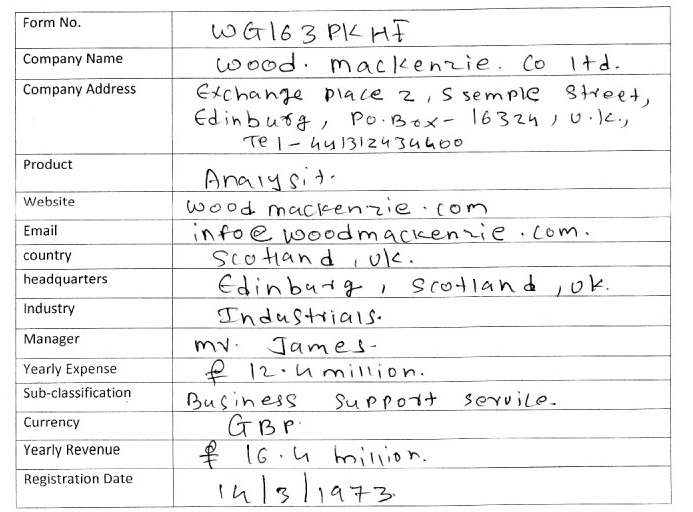 Form No. WG163PKHF
Company Name wood. mackenzie. Co ltd.
Company Address Exchange place 2, 5 semple street,
Edinburg, Po.Box- 16324, U.K.,
Tel - 441312434400
Product Analysit.
Website woodmackenzie.com
Email info@woodmackenzie.com.
country Scotland, UK.
headquarters Edinburg, Scotland, UK.
Industry Industrials.
Manager mr. James-
Yearly Expense £ 12.4 million.
Sub-classification Business support service.
Currency GBP.
Yearly Revenue £ 16.4 million.
Registration Date 14/3/1973.